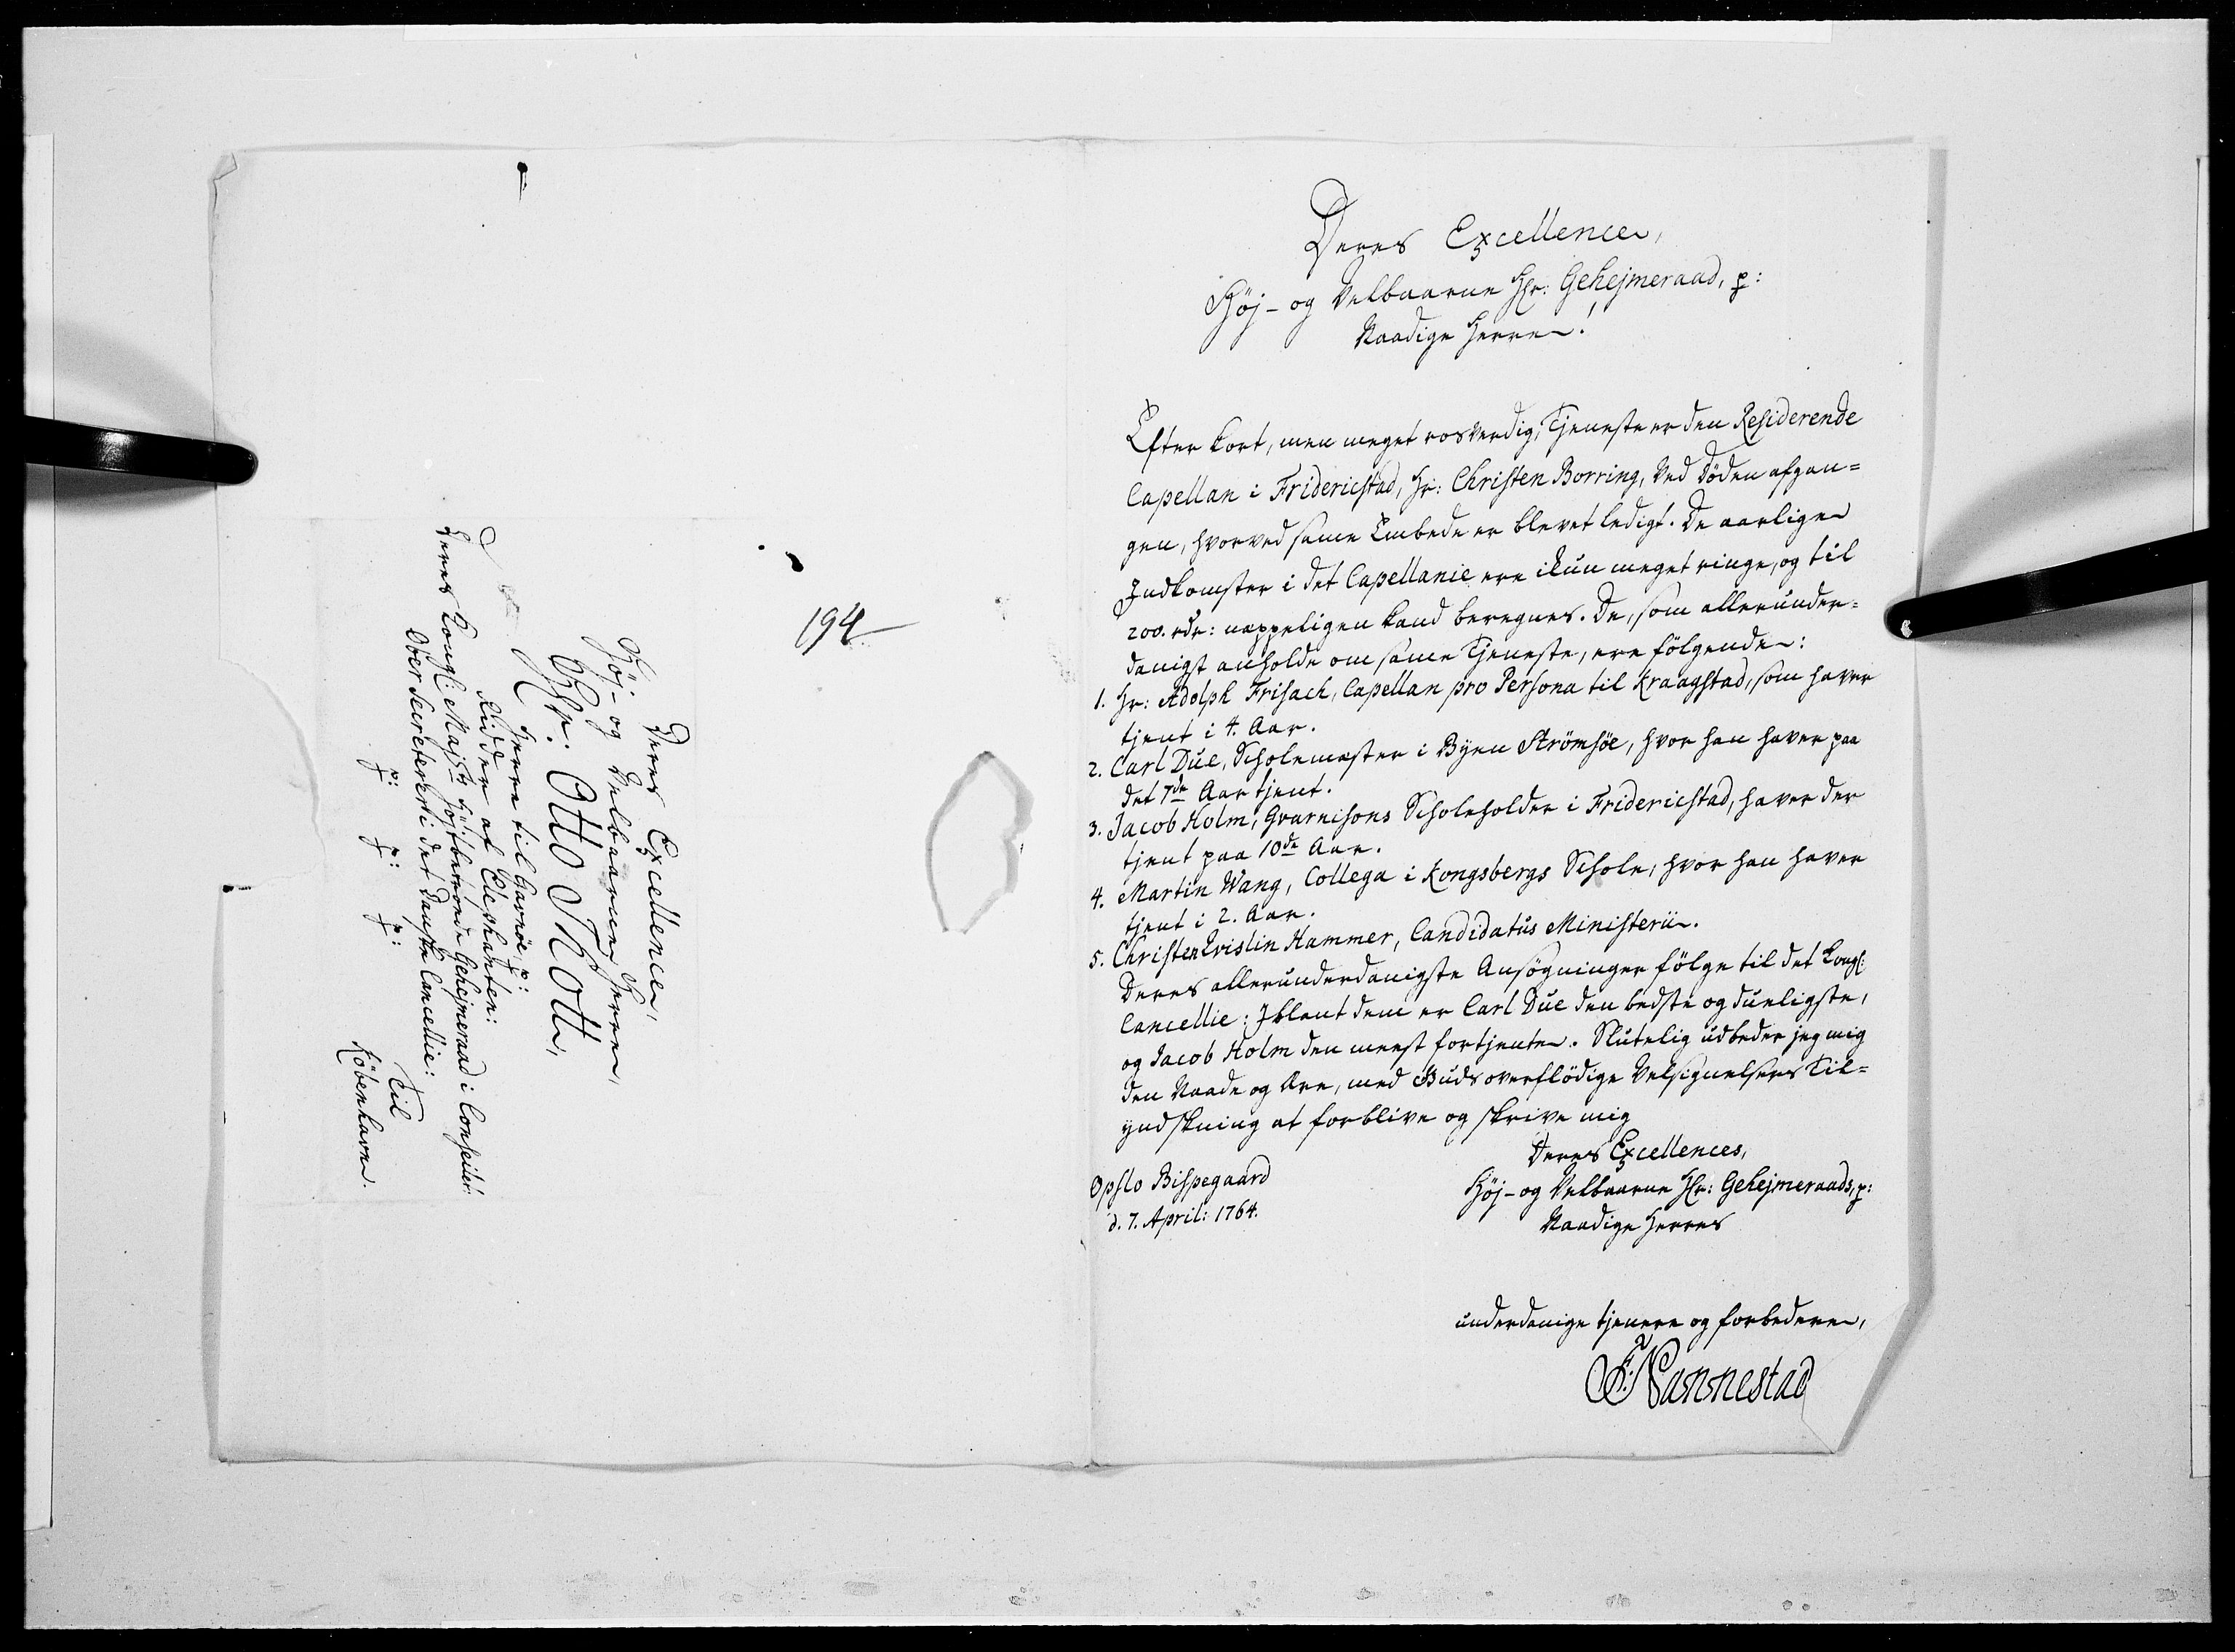 194
Deres Excellence,
Høj- og Velbaarne Herre,
Hr. Otto Thott,
Herre til Gavnøe, p:
Ridder af Elephanten:
Deres Kongl: Majsts højtbetroede Gehejmeraad i Conseilet
Ober Secreterer i det Danske Cancellie:
p: p: p:
Til
Köbenhavn.
Deres Excellence,
Höj- og Velbaarne Hr: Gehejmeraad, p:
Naadige Herre!
Efter kort, men meget rosverdig, Tjeneste er den Residerende
Capellan i Fridericstad, Hr: Christen Borring, ved Döden afgan=
gen, hvorved samme Embede er blevet ledigt. De aarlige
Indkomster i det Capellanie ere ikun meget ringe, og til
200. rdr: neppeligen kand beregnes. De, som allerunder=
danigst anholde om samme Tjeneste, ere fölgende:
1. Hr: Adolph Frisach, Capellan pro Persona til Kraagstad, som haver
tjent i 4. Aar.
2. Carl Due, Scholemester i Byen Strömsöe, hvor han haver paa
det 7de Aar tjent.
3. Jacob Holm, Gvarnisons Scholeholder i Fridericstad, haver der
tjent paa 10de Aar.
4. Martin Wang, Collega i Kongsbergs Schole, hvor han haver
tjent i 2. Aar.
5. Christen Hammer, Candidatus Ministerii.
Deres allerunderdanigste Ansögninger fölge til det Kongl:
Cancellie: Iblant dem er Carl Due den bedste og dueligste,
og Jacob Holm den meest fortjente. Slutelig udbeder jeg mig
den Naade og Ære, med Guds overflödige Velsignelsers Til=
yndskning at forblive og skrive mig
Deres Excellences,
Höj- og Velbaarne Hr: Gehejmeraads, p:
Naadige Herres
Opslo Bispegaard
d. 7. April: 1764.
underdanige tjenere og forbedere,
F: Nannestad